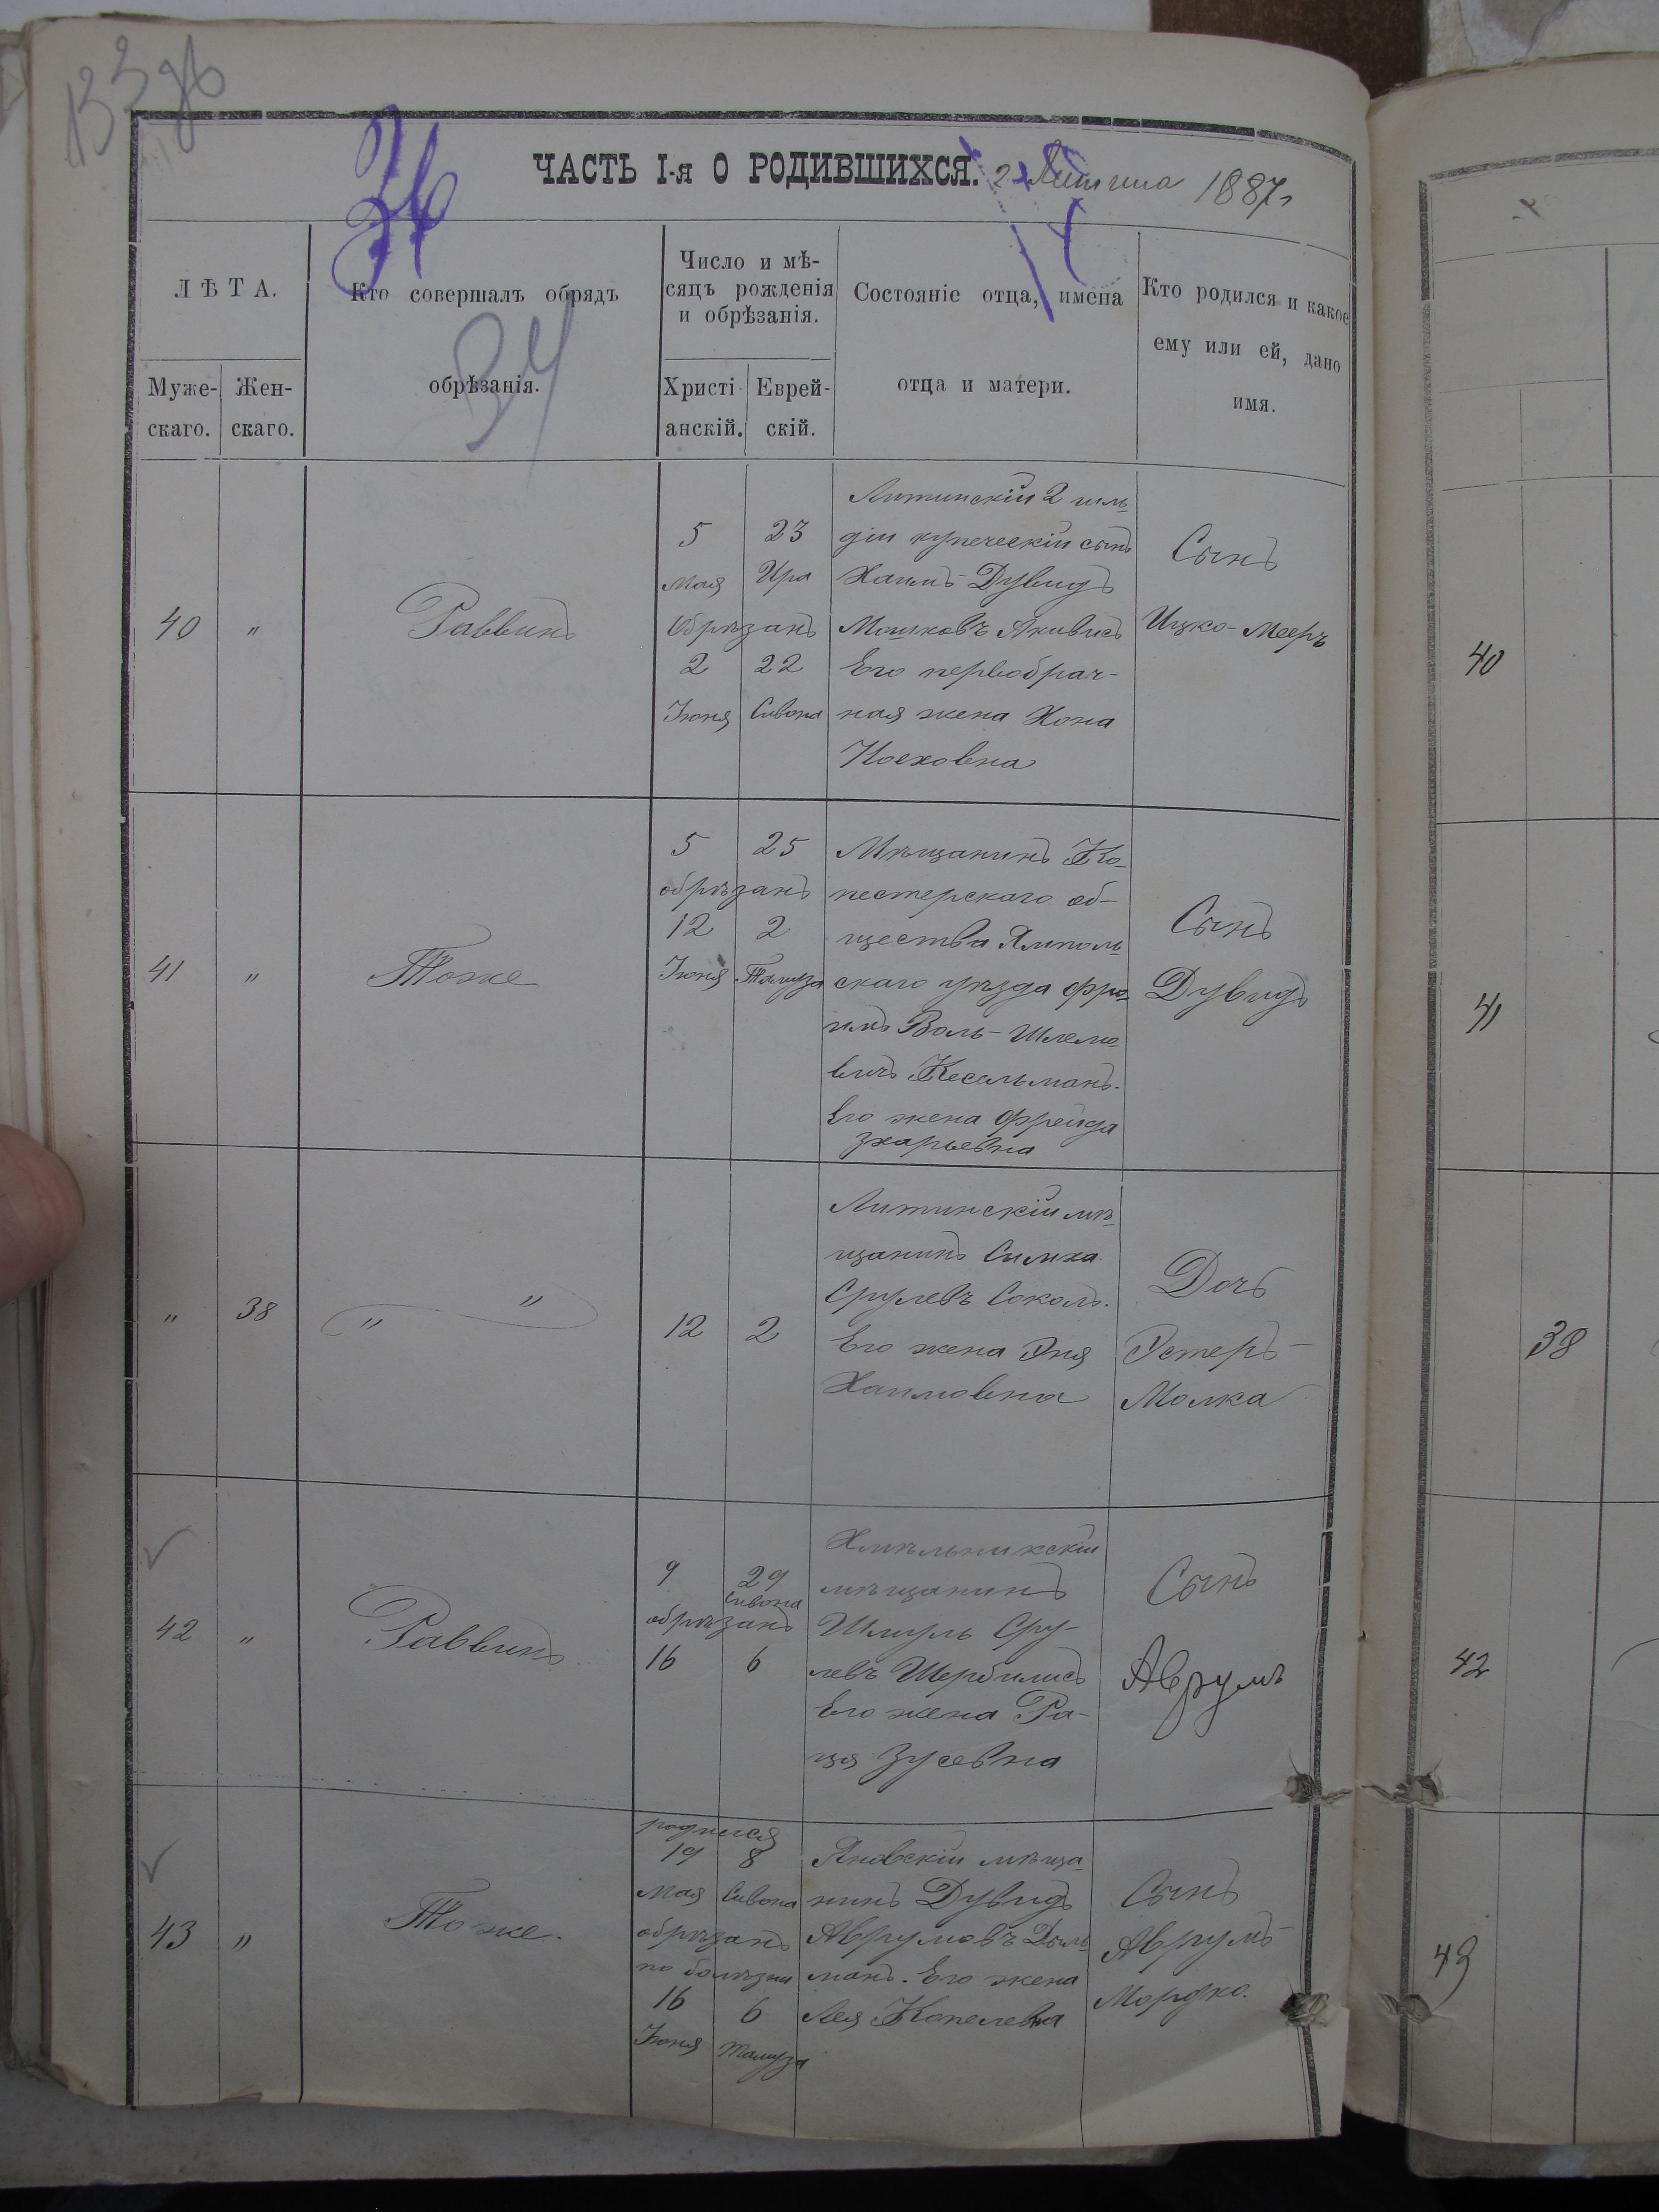 133 об
36
34
ЧАСТЬ I-я О РОДИВШИХСЯ. г Литина 1887 г
ЛѢТА.
Муже-
скаго.
Жен-
скаго.
Кто совершалъ обрядъ
обрѣзанія.
Число и мѣ-
сяцъ рожденія
и обрѣзанія.
Христі-
анскій.
Еврей-
скій.
Состояніе отца, имена
отца и матери.
Кто родился и какое
ему или ей, дано
имя.
40
"
Раввинъ
5 23
Мая Ира
Обрѣзанъ
2 22
Іюня Сивона
Литинскій 2 гиль
діи купеческій сынъ
Хаимъ-Дувидъ
Мошковъ Акивисъ
Его первобрач-
ная жена Хона
Іосховна
Сынъ
Ицко-Мееръ
41
"
Тоже
5 25
обрѣзанъ
12 2
Іюня Тамуза
Мѣщанинъ Ко-
пестерскаго об-
щества Ямполь
скаго уѣзда Фро-
имъ Воль-Шлемо
вичъ Кесельманъ.
Его жена Фрейда
Зхарьевна
Сынъ
Дувидъ
"
38
" "
12 2
Литинскій мѣ-
щанинъ Симха
Срулевъ Соколъ.
Его жена Эня
Хаимовна
Дочь
Эстеръ-
Малка
42
"
Раввинъ
9 29
Сивона
обрѣзанъ
16 6
Хмѣльникскій
мѣщанинъ
Шмуль Сру-
левъ Шербилисъ
Его жена Ра-
ця Зусевна
Сынъ
Аврумъ
43
"
Тоже.
родился
19 8
Мая Сивона
обрѣзанъ
по болѣзни
16 6
Іюня Тамуза
Яновскій мѣща
нинъ Дувидъ
Аврумовъ Дыль
манъ. Его жена
Лея Копелевна
Сынъ
Аврумъ-
Мордко.
40
41
38
42
43